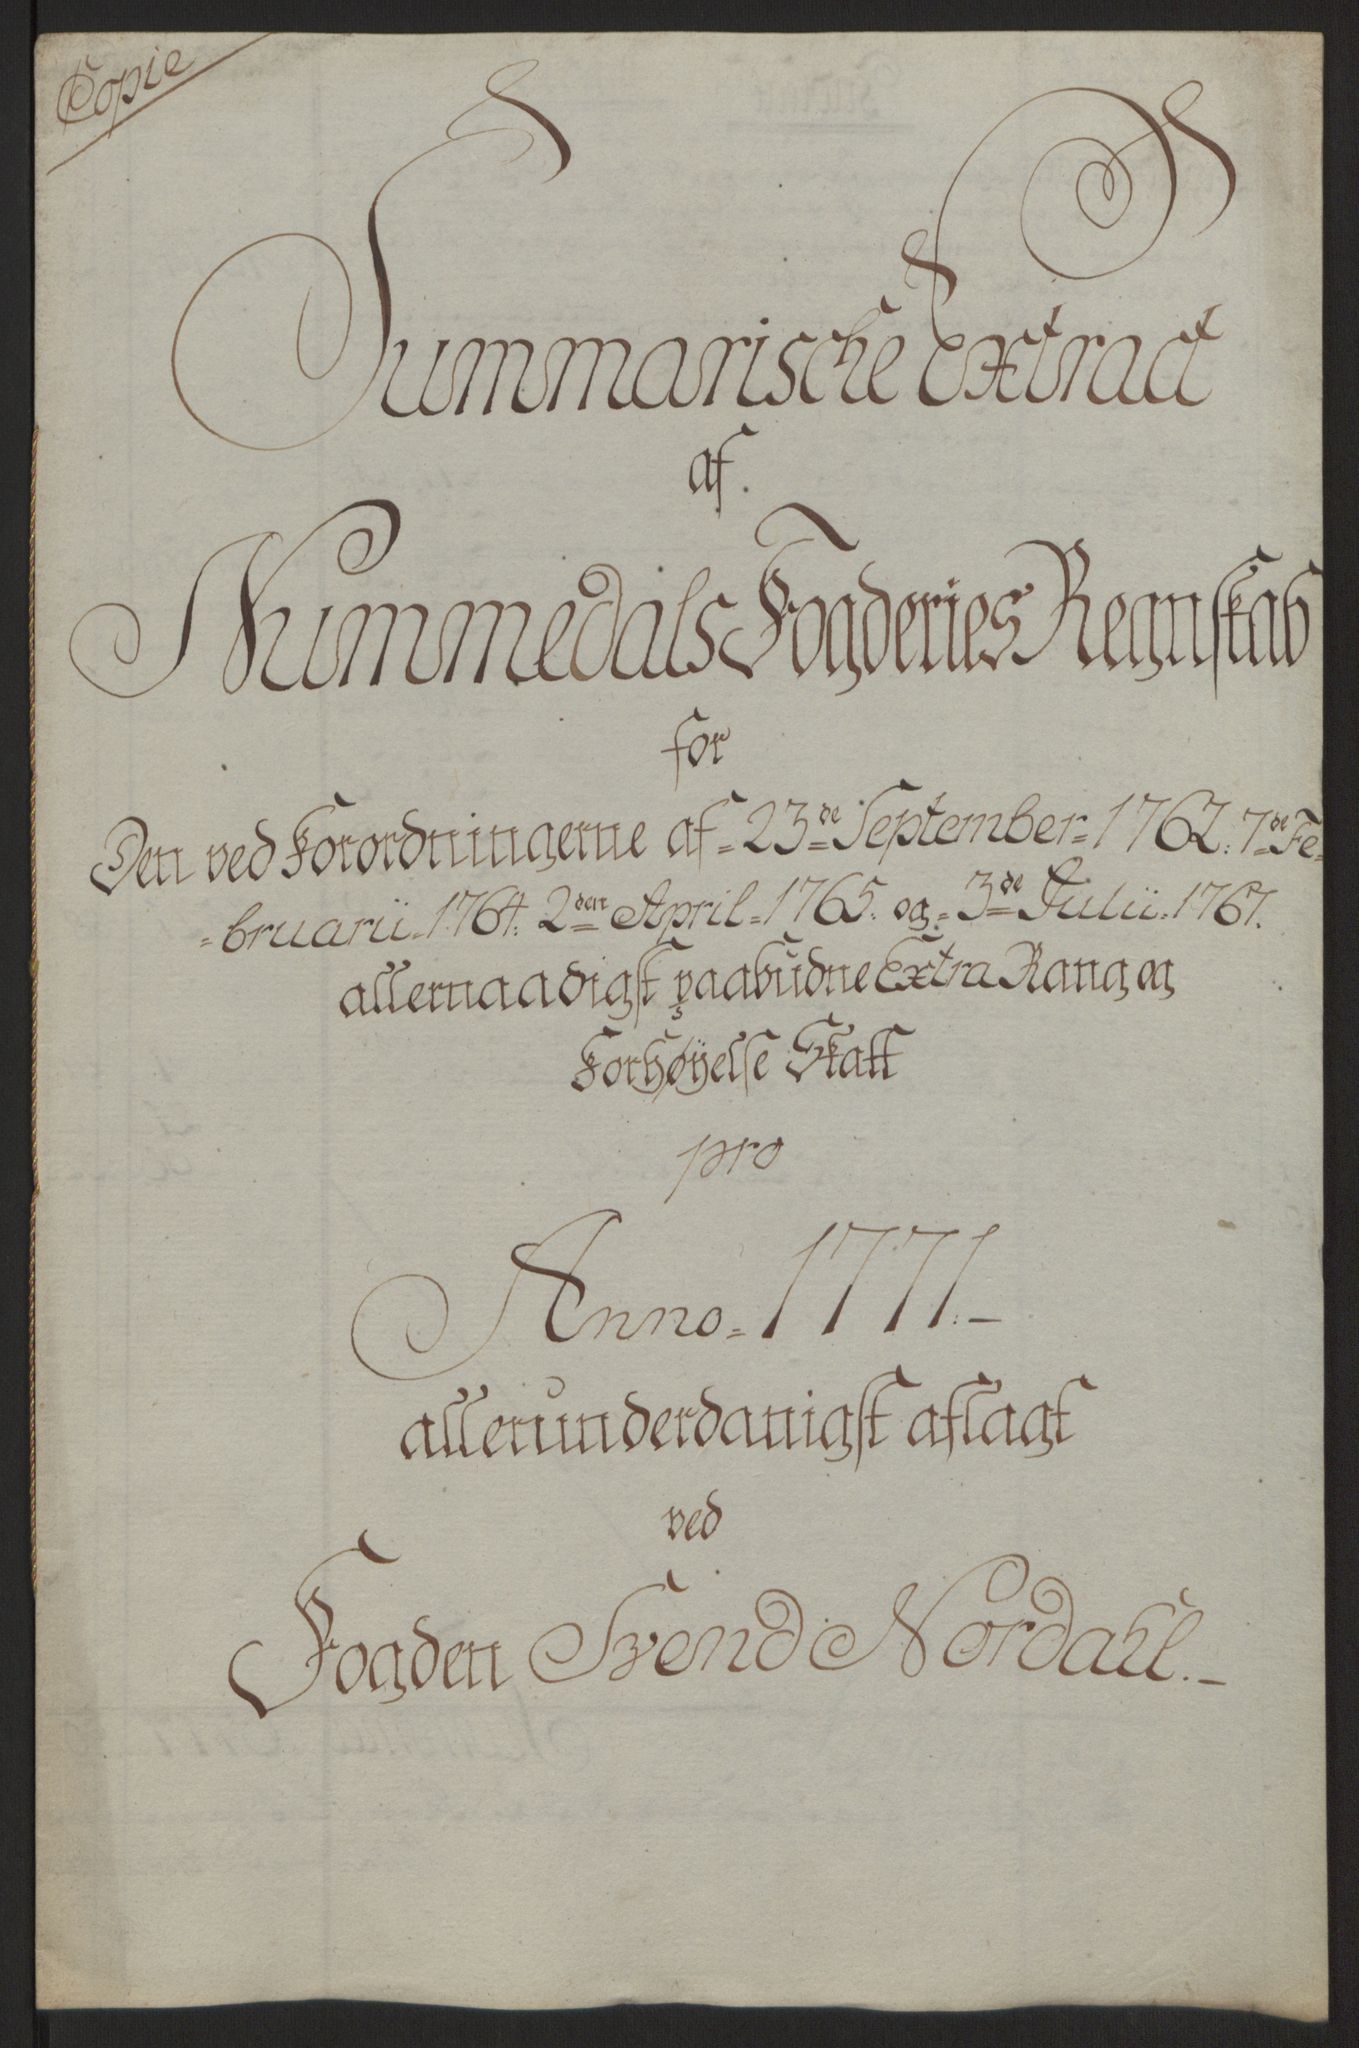 Copie
Summarische Extract
af
Nummedals Fogderies Regnskab
for
Den ved Forordningerne af 23de September 1762. 7de Fe=
=bruarii 1764. 2den April 1765. og 3de Julii 1767.
allernaadigst paabudne Extra Rang og
Forhøyelse Skatt
pro
Anno 1771.
allerunderdanigst aflagt
ved
Fogden Svend Nordahl.